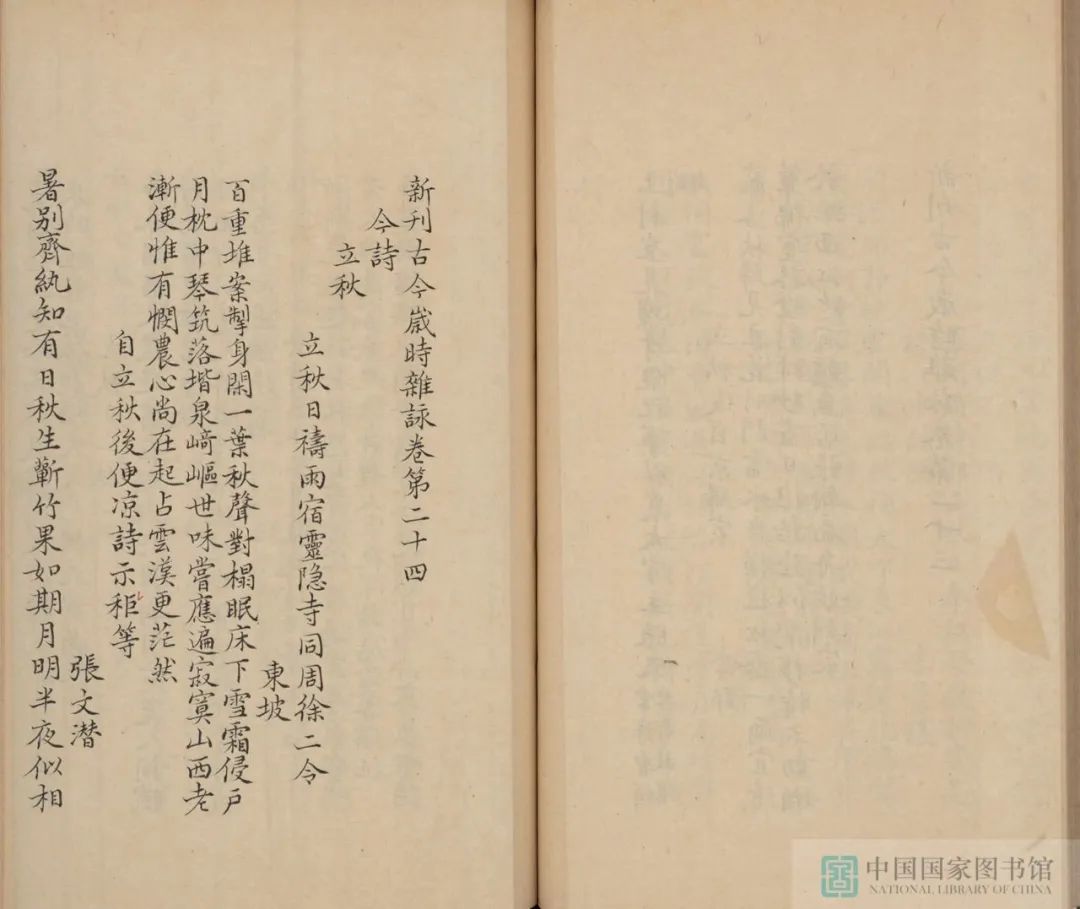 新刊古今歲時雜詠卷第二十四
今詩
立秋
立秋日禱雨宿靈隐寺同周徐二令
東坡
百重堆案掣身閑一葉秋聲對榻眠床下雪霜侵戶
月枕中琴筑落堦泉﨑嶇世味嘗應遍寂寞山西老
漸便惟有憫農心尚在起占雲漢更茫然
自立秋後便凉詩示秬等
張文潜
暑别齊紈知有日秋生蘄竹果如期月明半夜似相
中国国家图书馆
NATIONAL LIBRARY OF CHINA